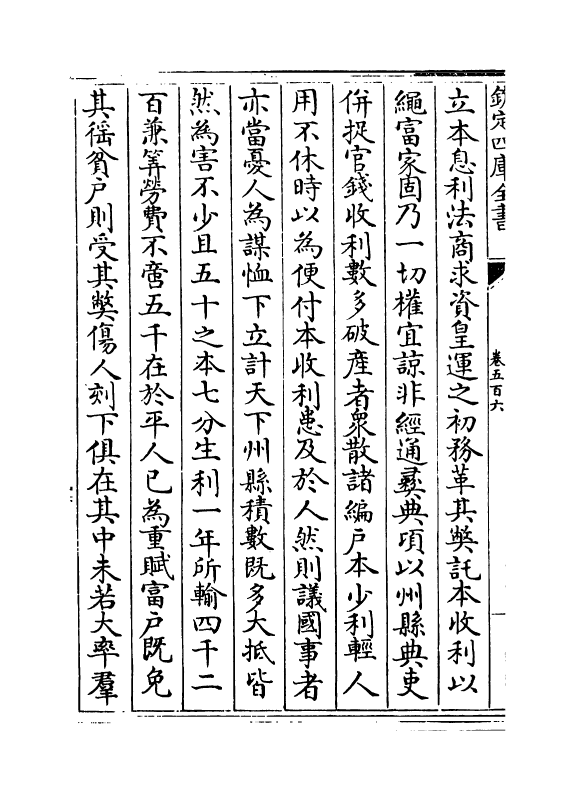 欽定四庫全書
卷五百六
立本息利法商求資皇運之初務革其獘託本收利以
繩富家固乃一切權宜諒非經通彛典項以州縣典吏
併捉官錢收利數多破產者衆散諸編戶本少利輕人
用不休時以為便付本收利患及於人然則議國事者
亦當憂人為謀恤下立計天下州縣積數既多大抵皆
然為害不少且五十之本七分生利一年所輸四千二
百兼筭勞費不啻五千在於平人已為重賦富戶既免
其徭貧戶則受其獘傷人刻下俱在其中未若大率羣